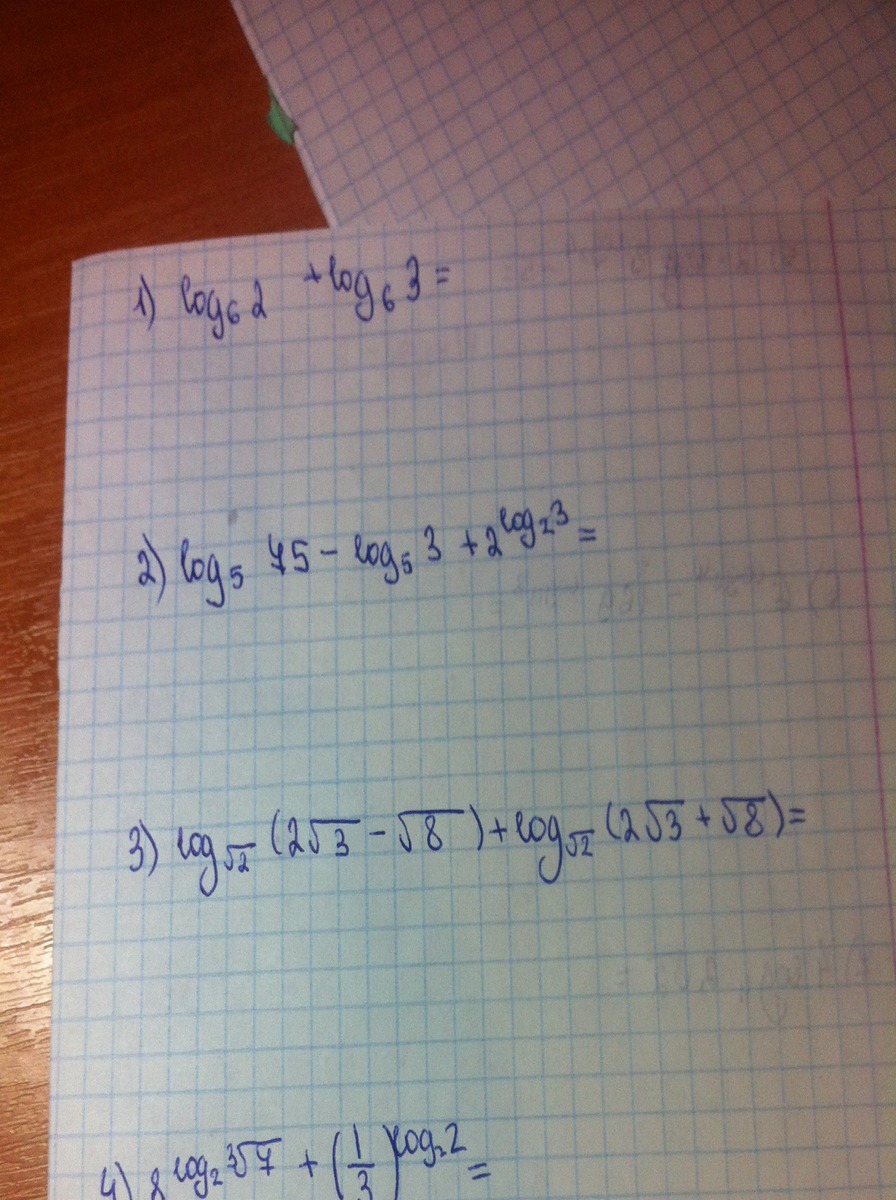 1) log₆2 + log₆3 =
2) log₅ 75 - log₅ 3 + 2^(log₂3) =
3) log_√2 (2√3 - √8) + log_√2 (2√3 + √8) =
4) 8^(log₂ ∛7) + (1/3)^(log₂2) =